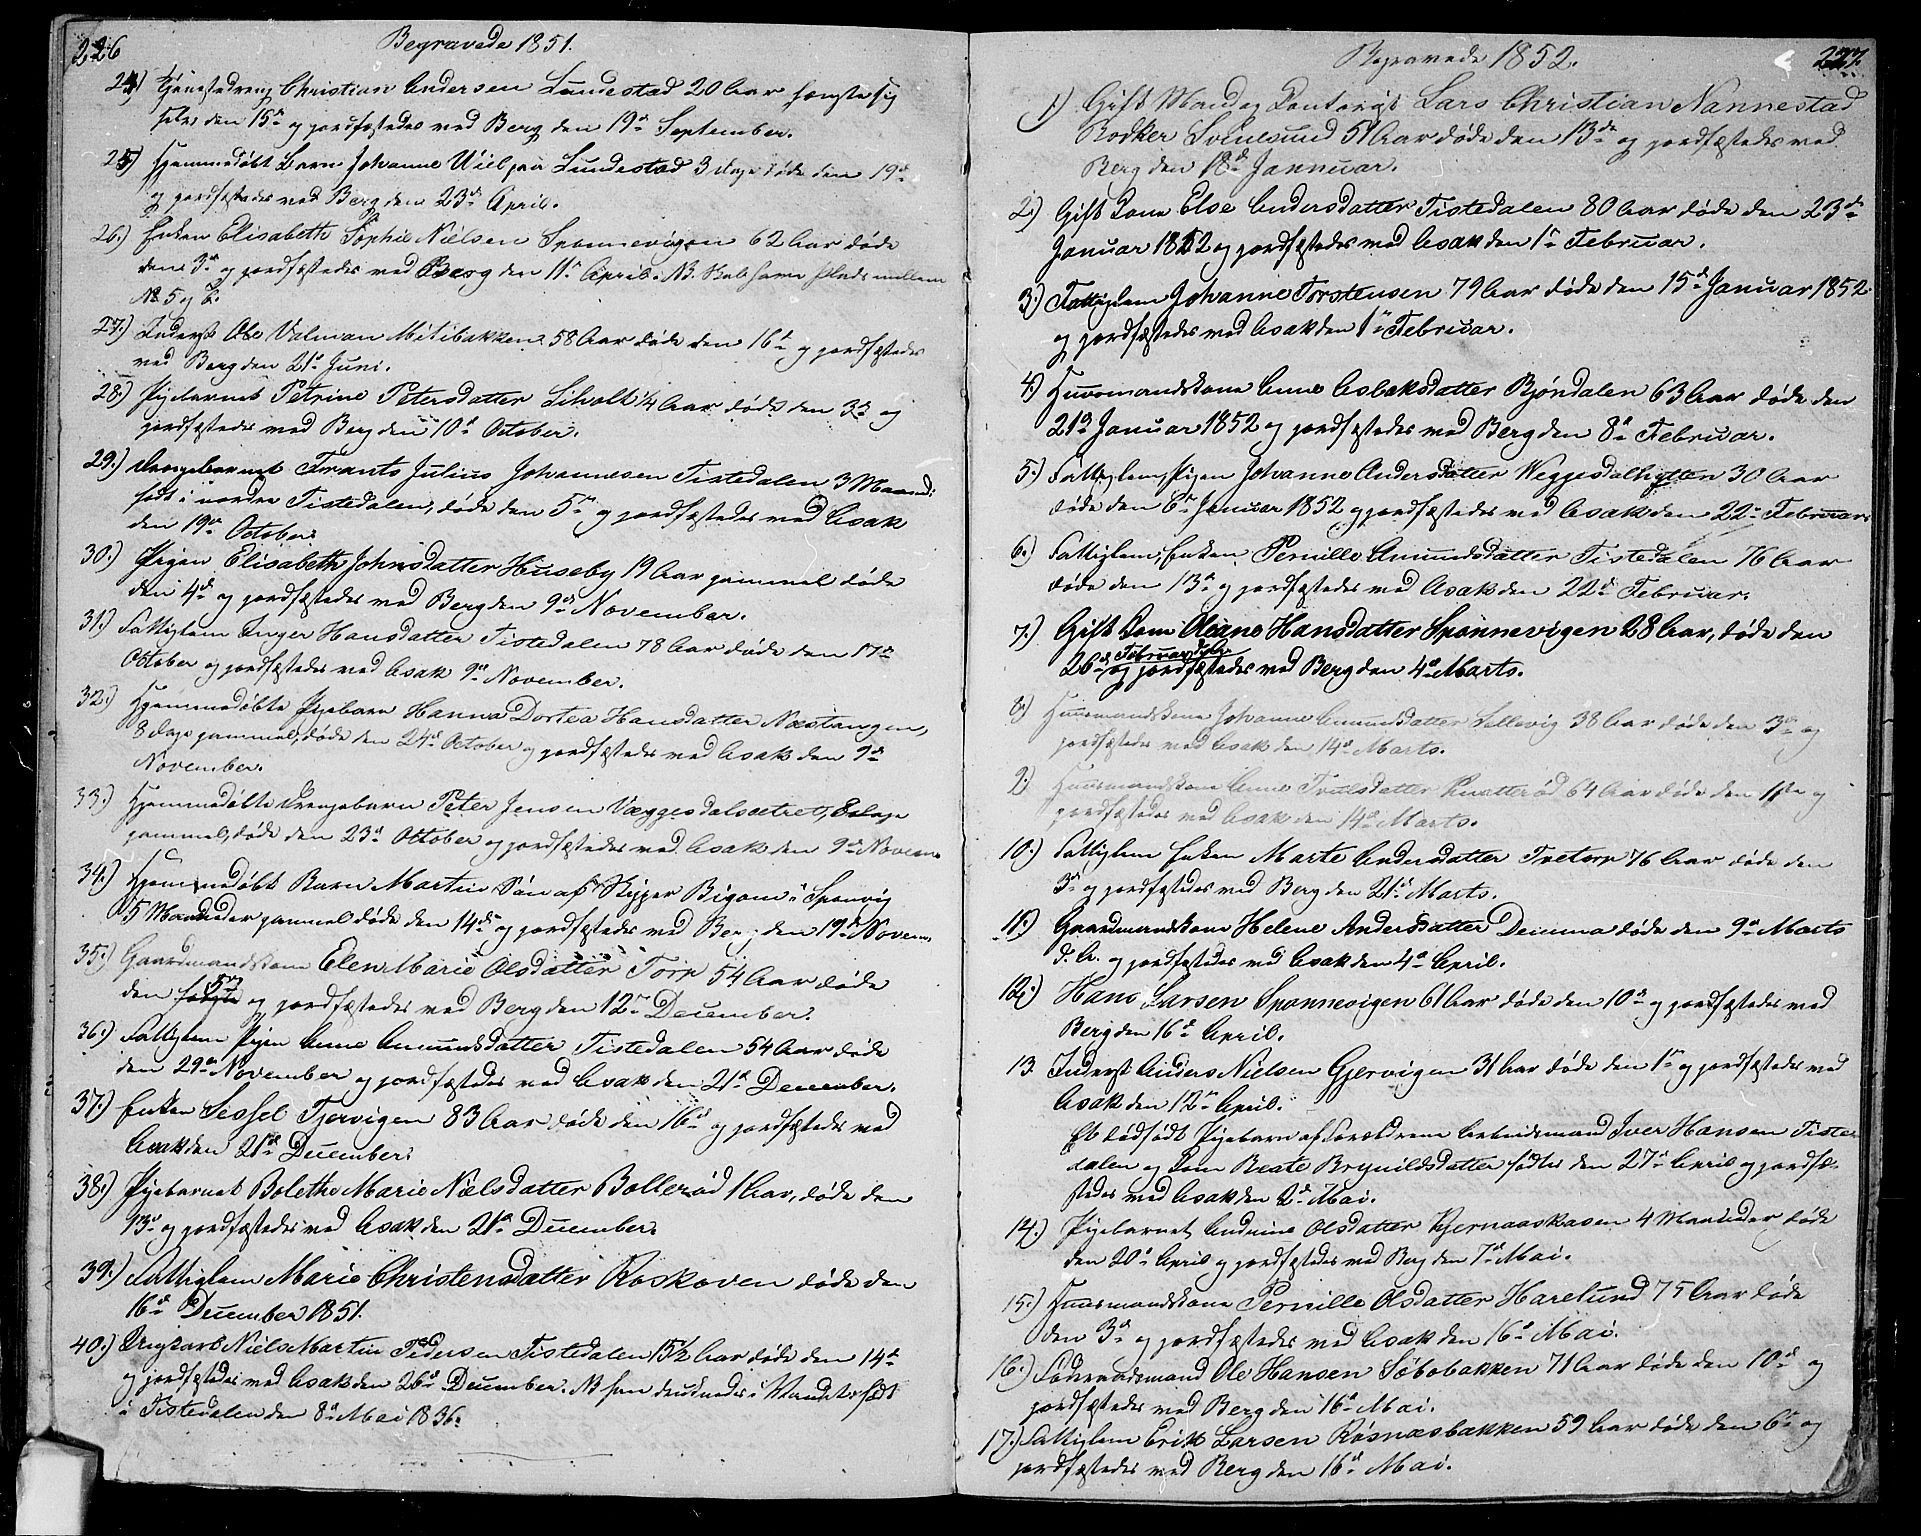 226
Begravede 1851.
24) Tjenestedreng Christian Andersen Lundestad 20 Aar hængte sig
selv den 15de og jordfæstedes ved Berg den 19de September.
25) Hjemmedøbt Barn Johanne fra Lundestad 3 Dage døde den 19de
og jordfæstedes ved Berg den 23de April.
26.) Enken Elisabeth Sophie Nielsen Sponnevigen 62 Aar døde
den 3de og jordfæstedes ved Berg den 11te April. NB. Skal have Plads mellem
No 5 og 6.
27.) Inderst Ole Valman Mitibakken 58 Aar døde den 16de og jordfæstedes
ved Berg den 21de Juni.
28.) Pigebarnet Petrine Petersdatter Liholt 1/4 Aar døde den 3de og
jordfæstedes ved Berg den 10de October.
29.) Drengebarnet Frants Julius Johannesen Tistedalen 3 Maaned:
født i nordre Tistedalen, døde den 5te og jordfæstedes ved Asak
den 19de October.
30.) Pigen Elisabeth Johnsdatter Huseby 19 Aar gammel døde
den 4de og jordfæstedes ved Berg den 9de November.
31.) Fattiglem Inger Hansdatter Tistedalen 78 Aar døde den 17de
October og jordfæstedes ved Asak 9de November.
32.) Hjemmedøbte Pigebarn Hanna Dortea Hansdatter Næstangen,
8 Dage gammel, døde den 24de October og jordfæstedes ved Asak den 9de
November.
33.) Hjemmedøbte Drengebarn Peter Jensen Væggesdalsætret, Dage
gammel, døde den 23de October og jordfæstedes ved Asak den 9de Novem
34.) Hjemmedøbt Barn Martin Søn af Skipper Bigom i Sponvig
5 Maaneder gammel døde den 14de og jordfæstedes ved Berg den 19de Novem
35.) Gaardmandskone Elen Marie Olsdatter Torp 54 Aar døde
den 5te og jordfæstedes ved Berg den 12te December.
36.) Fattiglem Pigen Anne Amundsdatter Tistedalen 54 Aar døde
den 29de November og jordfæstedes ved Asak den 21de December.
37.) Enken Sessel Tjervigen 83 Aar døde den 16de og jordfæstedes ved
Asak den 21de December.
38.) Pigebarnet Bolethe Marie Nielsdatter Bollerød 1 Aar, døde den
13de og jordfæstedes ved Asak den 21de December.
39.) Fattiglem Marie Christensdatter Roskoven døde den
16de December 1851.
40.) Ungkarl Niels Martin Pedersen Tistedalen 15 1/2 Aar døde den 14de
og jordfæstedes ved Asak den 26de December. NB han druknede i Vandet, født
i Tistedalen den 8de Mai 1836.
227.
Begravede 1852.
1) Gift Mand og Contorist Lars Christian Nannestad
Rodker Svinesund 51 Aar døde den 13de og jordfæstedes ved
Berg den 18de Januar.
2.) Gift Kone Else Andersdatter Tistedalen 80 Aar døde den 23de
Januar 1852 og jordfæstedes ved Asak den 1te Februar.
3.) Fattiglem Johanne Torstensen 79 Aar døde den 15de Januar 1852
og jordfæstedes ved Asak den 1te Februar.
4.) Huusmandskone Anne Aslaksdatter Bjøndalen 63 Aar døde den
21de Januar 1852 og jordfæstedes ved Berg den 8de Februar.
5.) Fattiglem, Pigen Johanne Andersdatter Weggesdalhytten 30 Aar
døde den 6te Januar 1852 og jordfæstedes ved Asak den 22de Februar
6.) Fattiglem, Enken Pernille Amundsdatter Tistedalen 76 Aar
døde den 13de og jordfæstedes ved Asak den 22de Februar.
7.) Gift Kone Oleane Hansdatter Sponnevigen 28 Aar, døde den
26de Februar og jordfæstedes ved Berg den 4de Marts.
8.) Huusmandskone Johanne Amundsdatter Sollevig 38 Aar døde den 3de og
jordfæstedes ved Asak den 14de Marts.
9.) Huusmandskone Anne Truelsdatter Knatterød 64 Aar døde den 1ste og
jordfæstedes ved Asak den 14de Marts.
10.) Fattiglem Enken Marte Andersdatter Tvetorp 76 Aar døde den
3de og jordfæstedes ved Berg den 21de Marts.
11.) Gaardmandskone Helene Andersdatter Demma døde den 9de Marts
d. A. og jordfæstedes ved Asak den 4de April.
12.) Hans Larsen Sponnevigen 61 Aar døde den 10de og jordfæstedes ved
Berg den 16de April.
13. Inderst Anders Nielsen Gjervigen 31 Aar døde den 1te og jordfæstedes ved
Asak den 12te April.
Et dødfødt Pigebarn af Forældrene Arbeidsmand Iver Hansen Tiste
dalen og Kone Beate Brynildsdatter fødtes den 27de April og jordfæ-
stedes ved Asak den 2de Mai.
14.) Pigebarnet Andrine Olsdatter Kjernaaskasen 4 Maaneder døde
den 20de April og jordfæstedes ved Berg den 7de Mai.
15.) Huusmandskone Pernille Olsdatter Harelund 75 Aar døde
den 3de og jordfæstedes ved Asak den 16de Mai.
16.) Føderaadsmand Ole Hansen Søbobakken 71 Aar døde den 10de og
jordfæstedes ved Berg den 16de Mai.
17.) Fattiglem Erik Larsen Røsnæsbakken 59 Aar døde den 6te og
jordfæstedes ved Berg den 16de Mai.